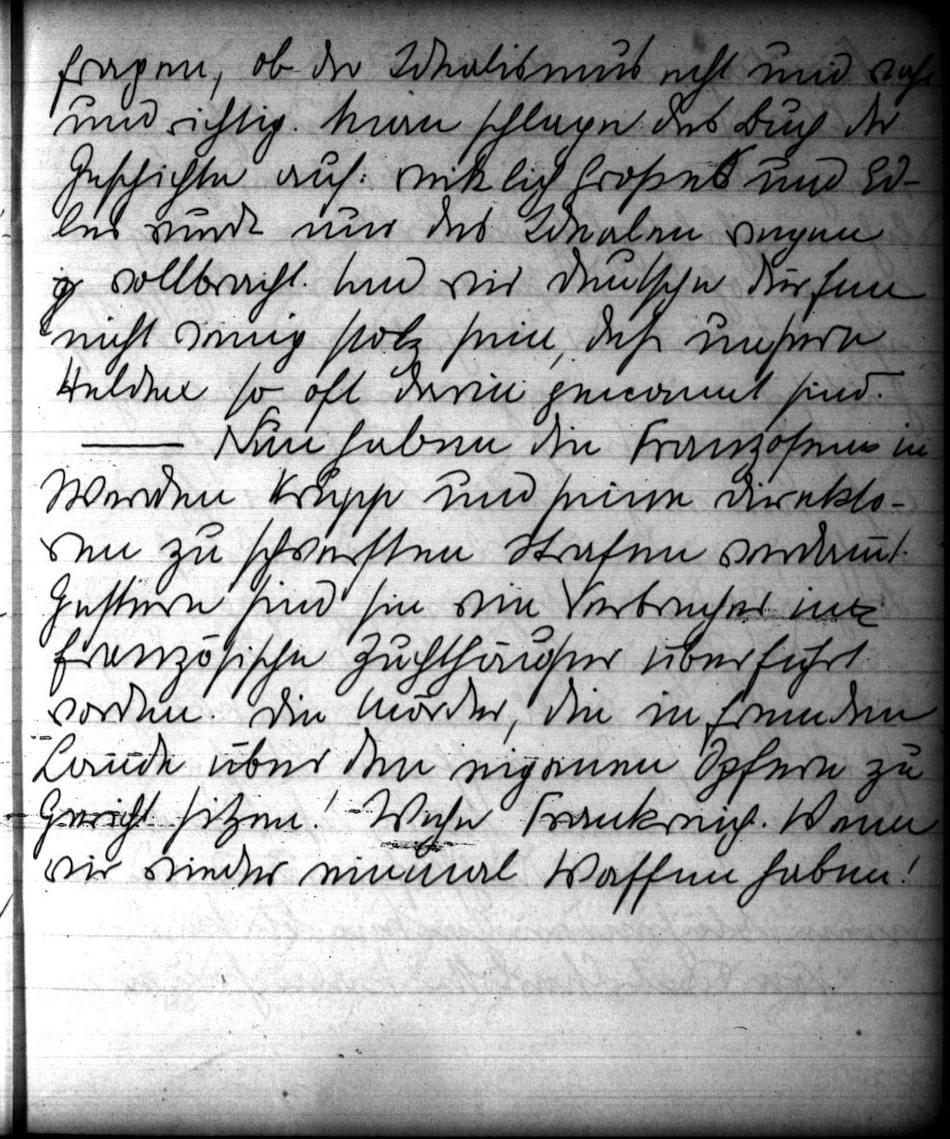 fragen, ob der Idealismus echt und wahr
und richtig. Man schlage das Buch der
Geschichte auf: wirklich Großes und Ed-
les wurde nur des Idealen wegen
vollbracht. Und wir Deutsche dürfen
nicht wenig stolz sein, daß unsere
Helden so oft darin genannt sind.
——— Nun haben die Franzosen in
Werden Krupp und seine Direkto-
ren zu schwersten Strafen verdammt.
Gestern sind sie wie Verbrecher in
französische Zuchthäuser überführt
worden. Die Mörder, die in fremden
Lande über den eigenen Opfern zu
Gericht sitzen! Wehe Frankreich. Wenn
wir wieder einmal Waffen haben!